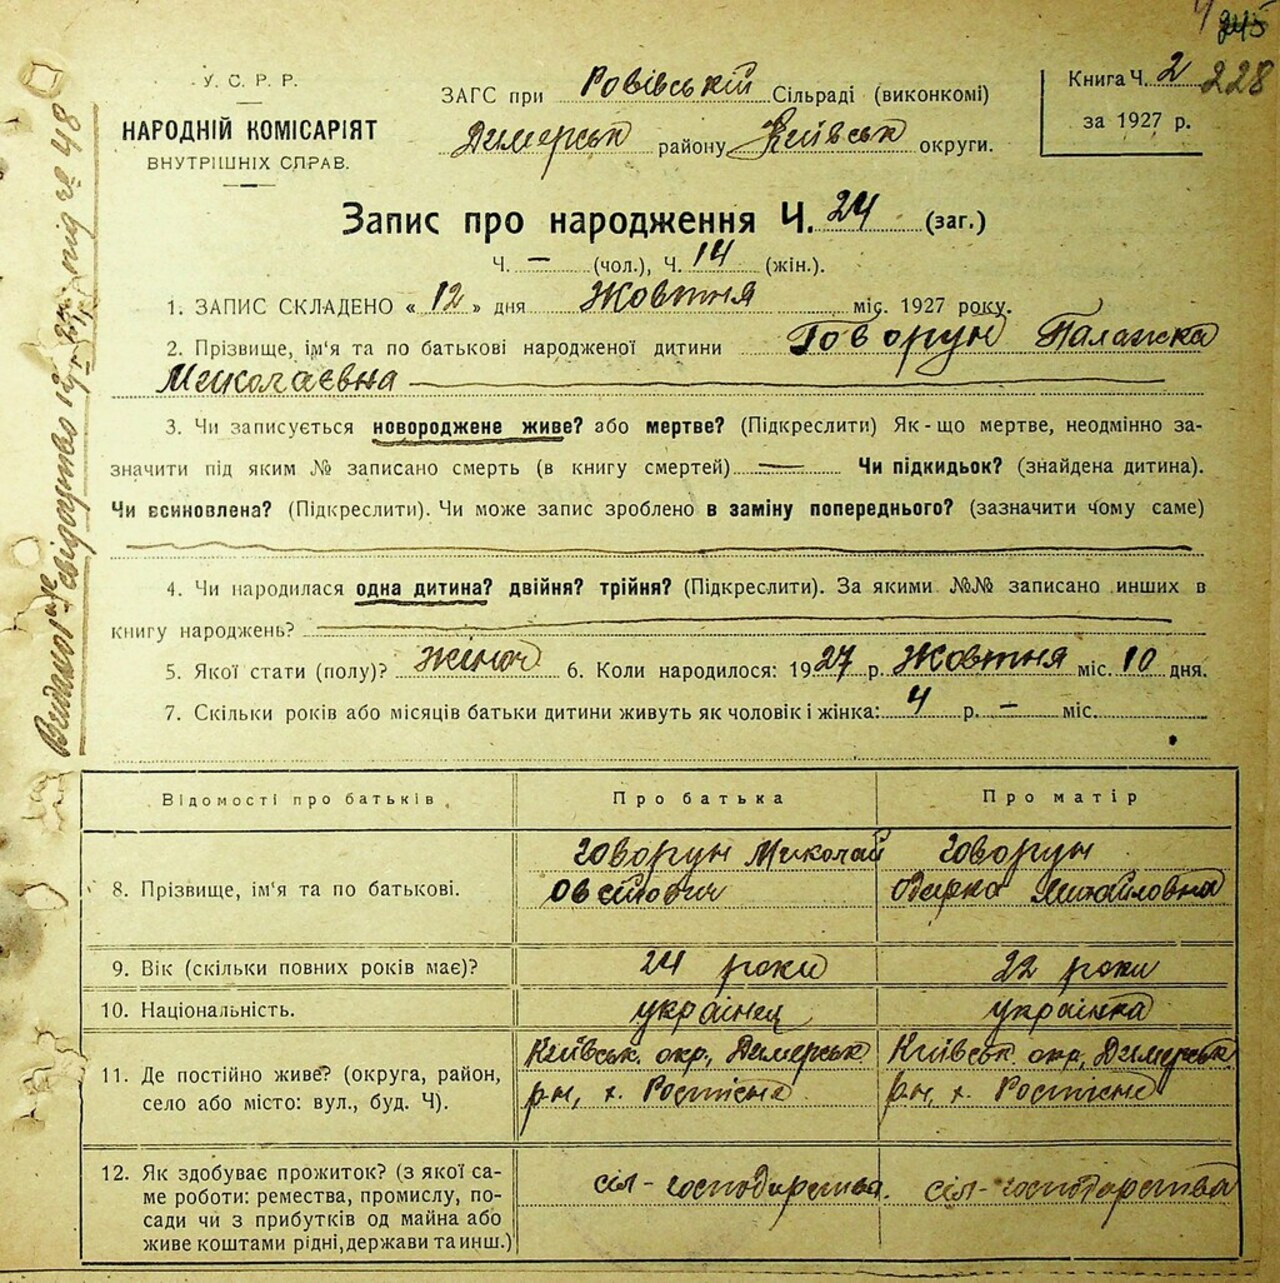 У. С. Р. Р.
НАРОДНІЙ КОМІСАРІЯТ
ВНУТРІШНІХ СПРАВ.
ЗАГС при Ровівській Сільраді (виконкомі)
Димерськ району Київськ округи.
Книга Ч. 2 228
за 1927 р.
Запис про народження Ч. 24 (заг.)
Ч. — (чол.), Ч. 14 (жін.).
1. ЗАПИС СКЛАДЕНО « 12 » дня Жовтня міс. 1927 року.
2. Прізвище, ім'я та по батькові народженої дитини Говорун Палажка
Миколаєвна
3. Чи записується новороджене живе? або мертве? (Підкреслити) Як-що мертве, неодмінно за-
значити під яким № записано смерть (в книгу смертей) — Чи підкидьок? (знайдена дитина).
Чи всиновлена? (Підкреслити). Чи може запис зроблено в заміну попереднього? (зазначити чому саме)
4. Чи народилася одна дитина? двійня? трійня? (Підкреслити). За якими №№ записано инших в
книгу народжень?
5. Якої стати (полу)? Жіноч 6. Коли народилося: 1927 р. Жовтня міс. 10 дня.
7. Скільки років або місяців батьки дитини живуть як чоловік і жінка: 4 р. — міс.
Відомості про батьків Про батька Про матір
8. Прізвище, ім'я та по батькові.
Говорун Миколай
Говорун
Одарка Михайловна
9. Вік (скільки повних років має)? 24 роки 22 роки
10. Національність. українец українка
11. Де постійно живе? (округа, район,
село або місто: вул., буд. Ч).
Київськ. окр., Димерськ
рн, х. Ростісне
Київськ. окр, Димерськ
рн, х. Ростісне
12. Як здобуває прожиток? (з якої са-
ме роботи: ремества, промислу, по-
сади чи з прибутків од майна або
живе коштами рідні, держави та инш.)
сіл-господарства.
сіл-господарства